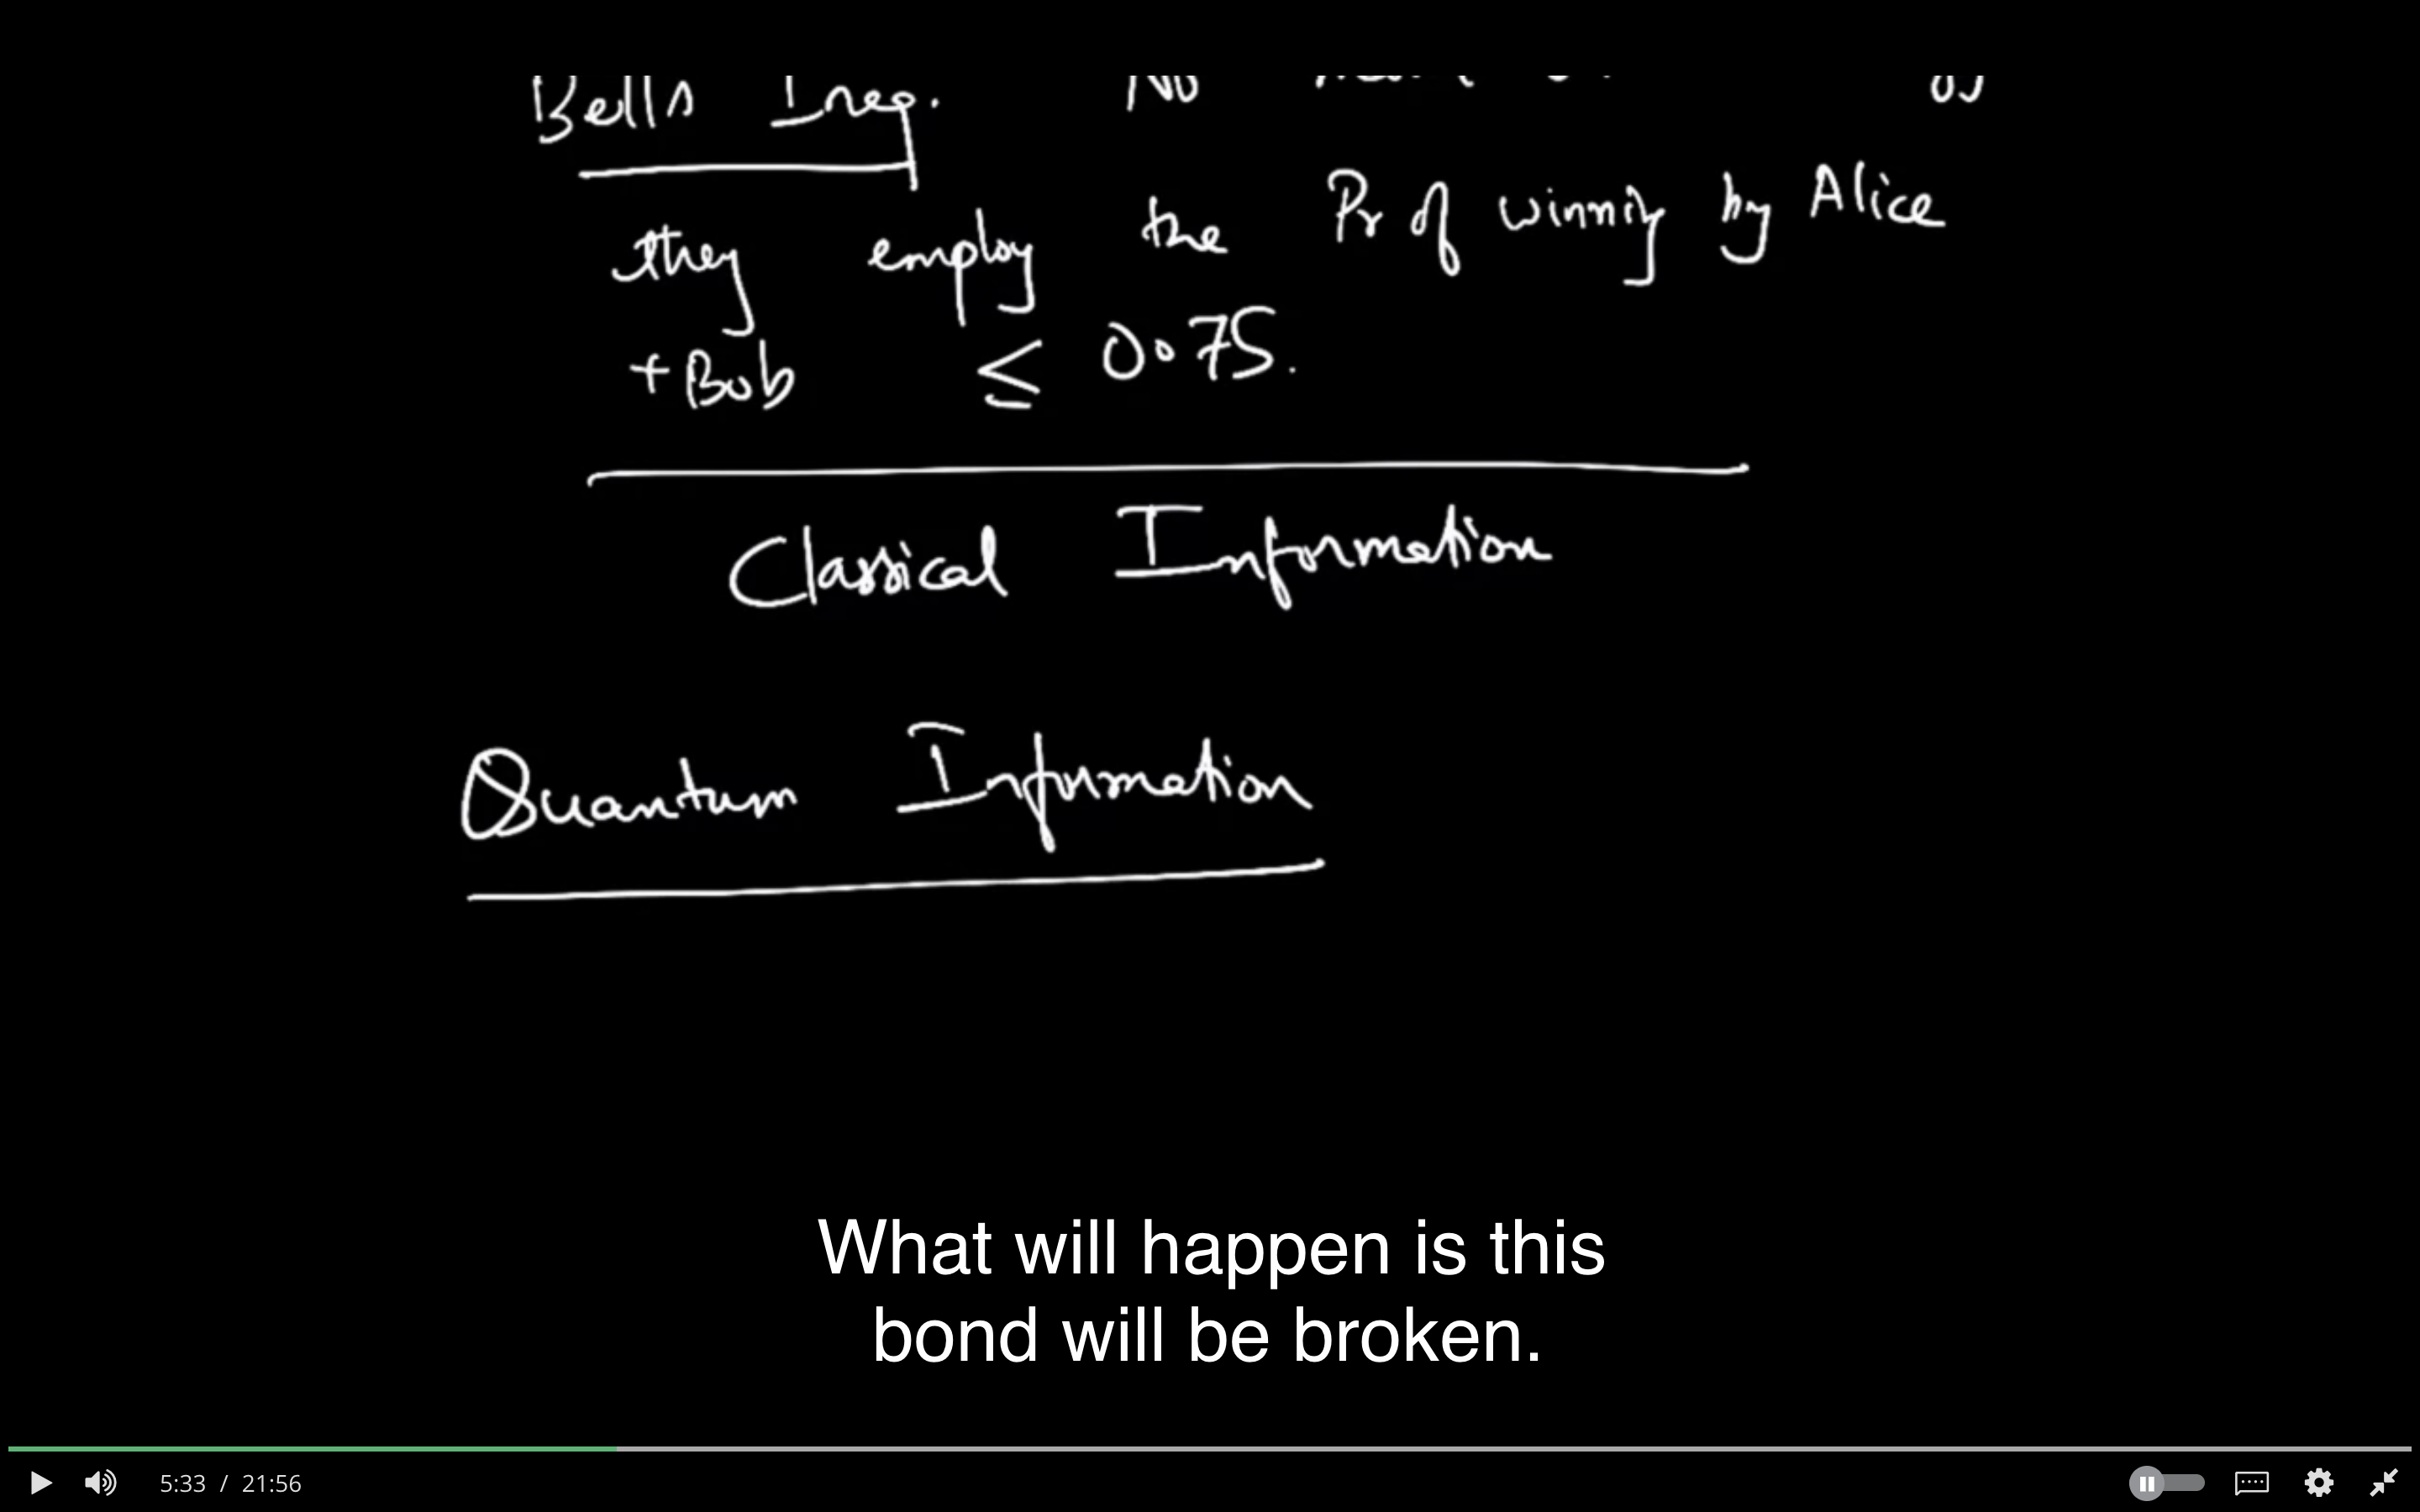 Bells Ineq. No
they employ the Pr of winning by Alice
+ Bob ≤ 0.75.
Classical Information
Quantum Information
What will happen is this
bond will be broken.
5:33 / 21:56